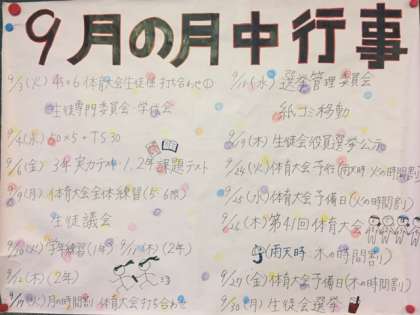 9月の月中行事
9/3(火) 4h・6 体育会生徒 打ち合わせ①
生徒専門委員会・学級会
9/4(水) 50×5+TS30
9/6(金) 3年実力テスト 1、2年課題テスト
9/9(月) 体育大会全体練習(5・6限)
生徒議会
9/10(火) 学年練習(1年) 9/12(木)(2年)
9/12(木)(2年)
9/17(火) 月の時間割 体育大会打ち合わせ
9/18(水) 選挙管理委員会
紙ゴミ移動
9/19(木) 生徒会役員選挙公示
9/24(火) 体育大会予行(雨天時:火の時間割)
9/25(水) 体育大会予備日(火の時間割)
9/26(木) 第41回体育大会
(雨天時:木の時間割)
9/27(金) 体育大会予備日(木の時間割)
9/30(月) 生徒会選挙